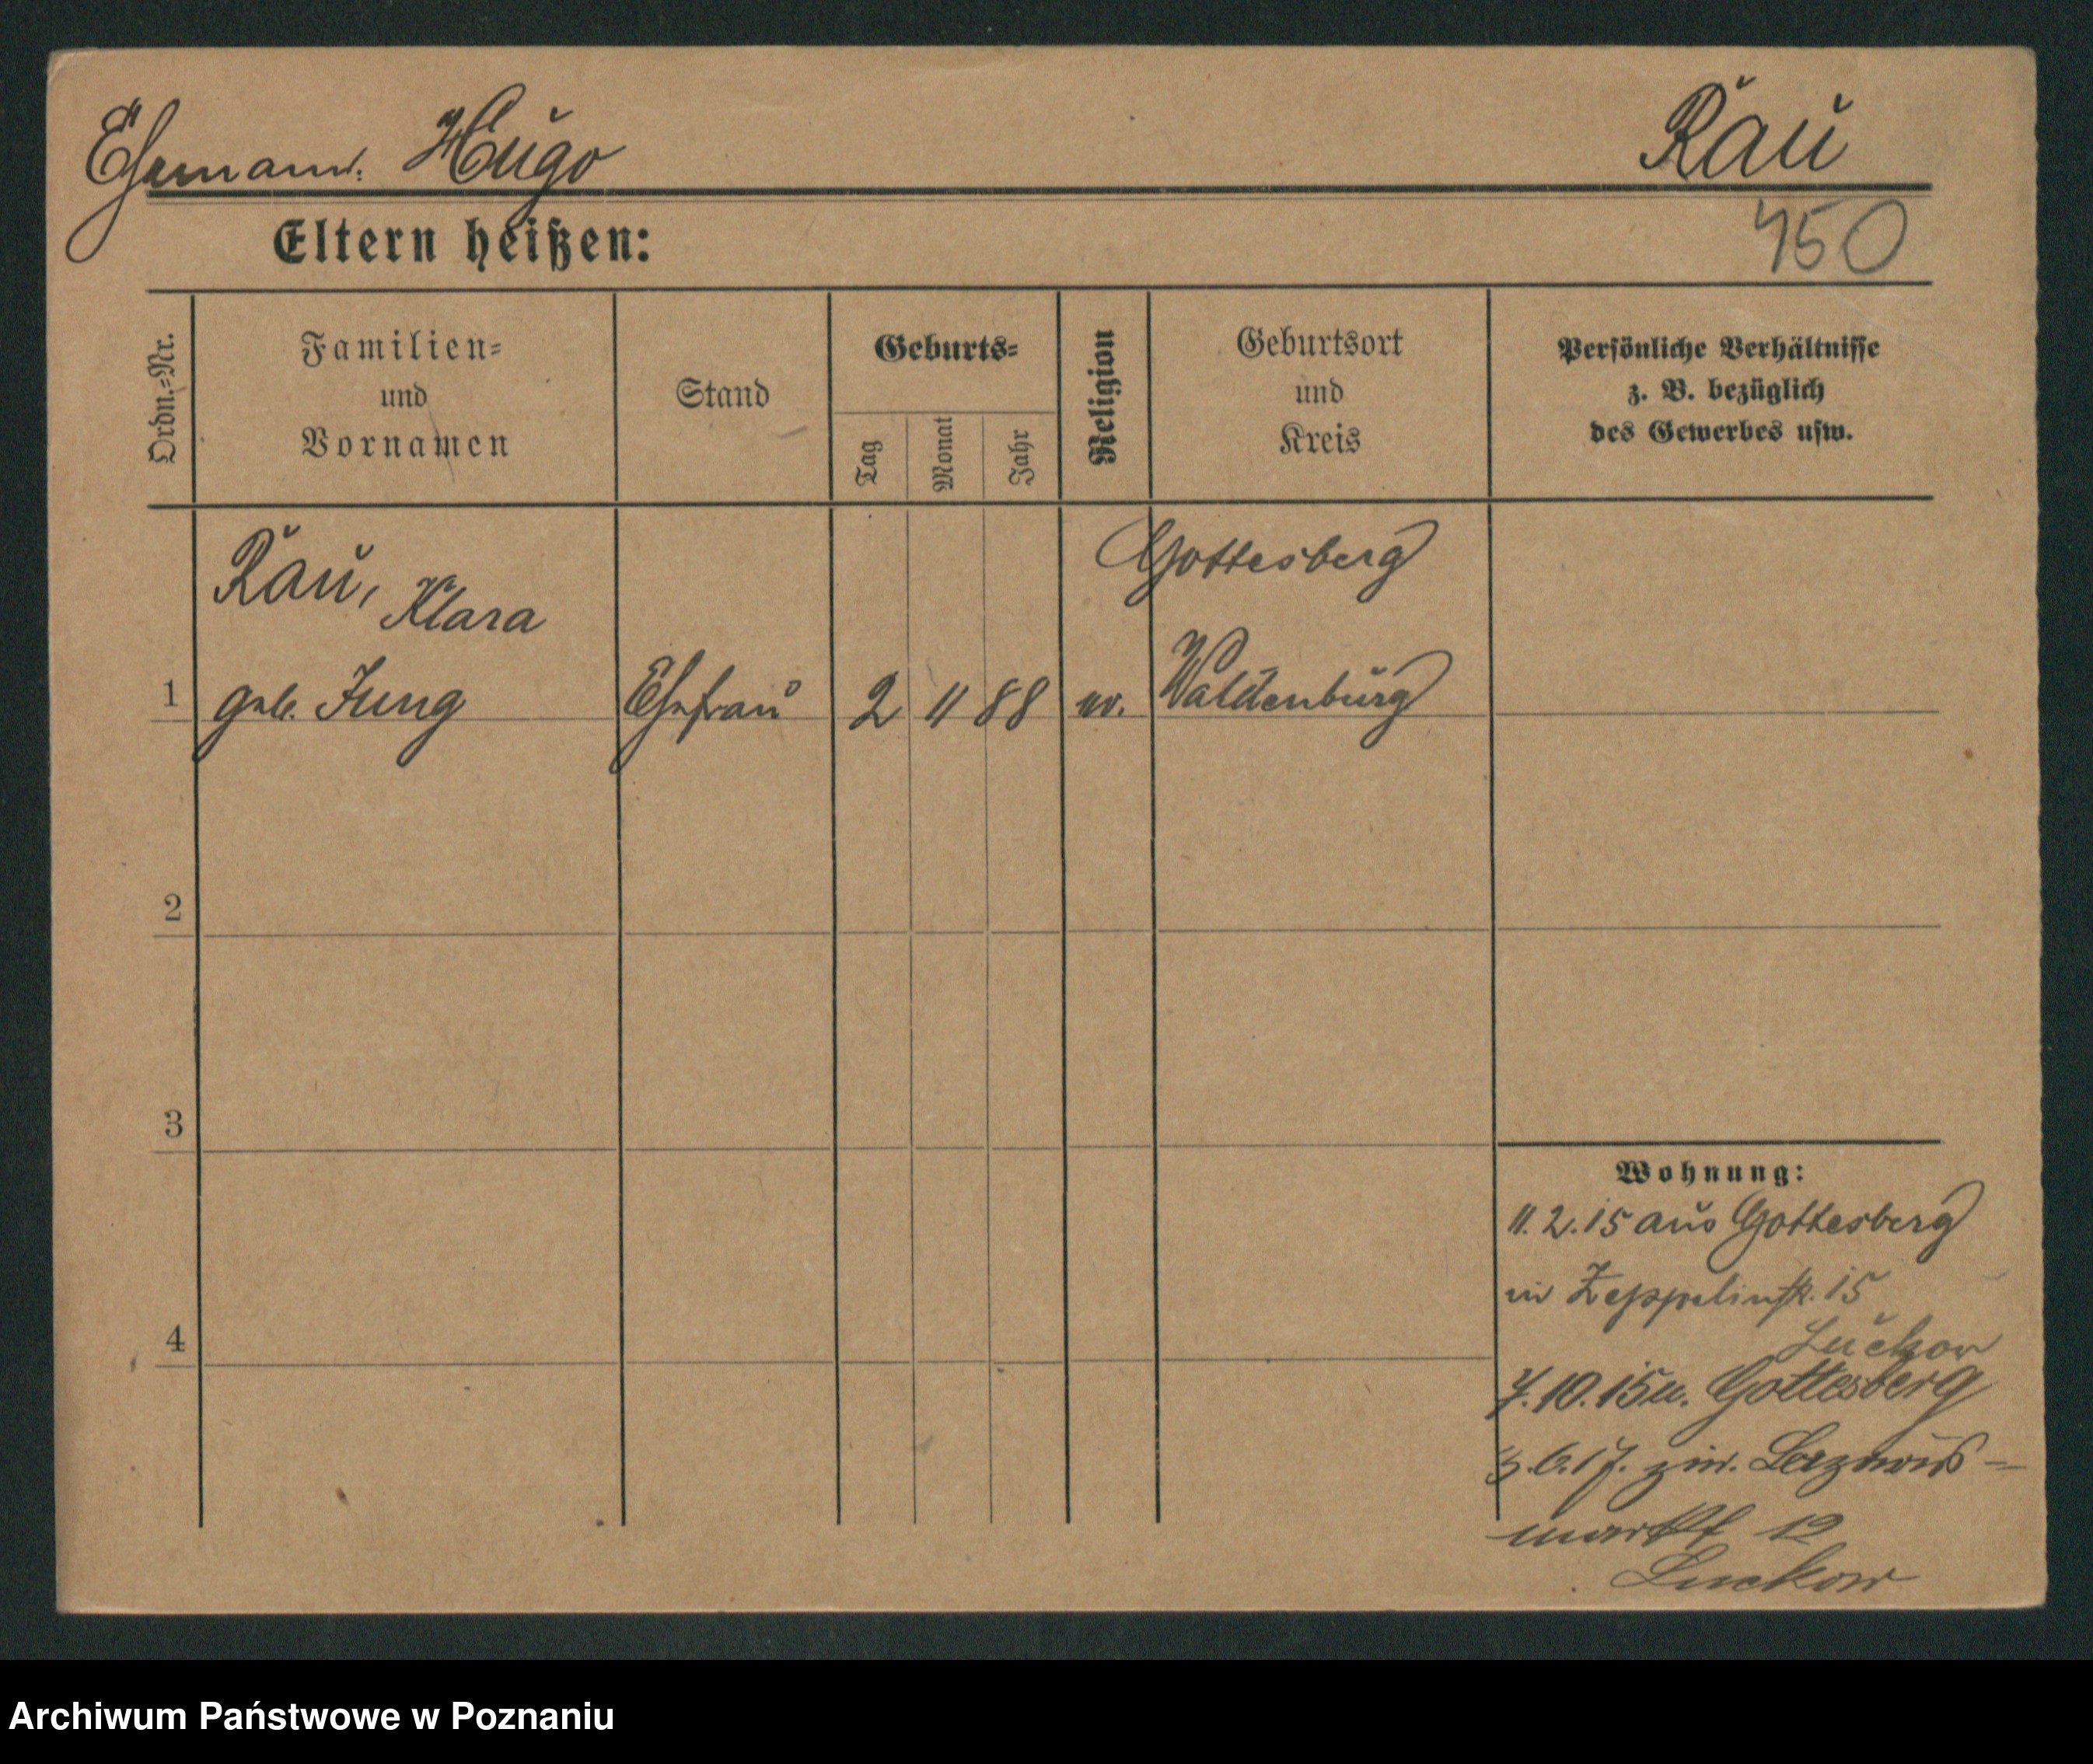 Ehemann: Hugo Rau
Eltern heißen: 450
Ordn.-Nr.
Familien-
und
Vornamen
Stand
Geburts-
Tag
Monat
Jahr
Religion
Geburtsort
und
Kreis
Persönliche Verhältnisse
z. B. bezüglich
des Gewerbes usw.
Rau, Klara
Gottesberg
1 geb. Jung Ehefrau 2 11 88 ev. Waldenburg
2
3
4
Wohnung:
11. 2. 15 aus Gottesberg
in Zeppelinstr. 15
Luckow
7. 10. 15 n. Gottesberg
3. 6. 17. zur.
markt 12
Luckow
Archiwum Państwowe w Poznaniu